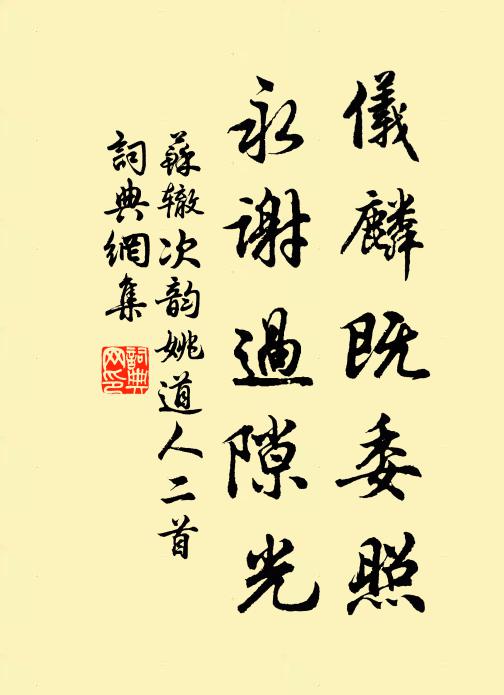 儀麟既委照
永謝過隙光
蘇辙次韵姚道人二首
詞典網集
詞典網印